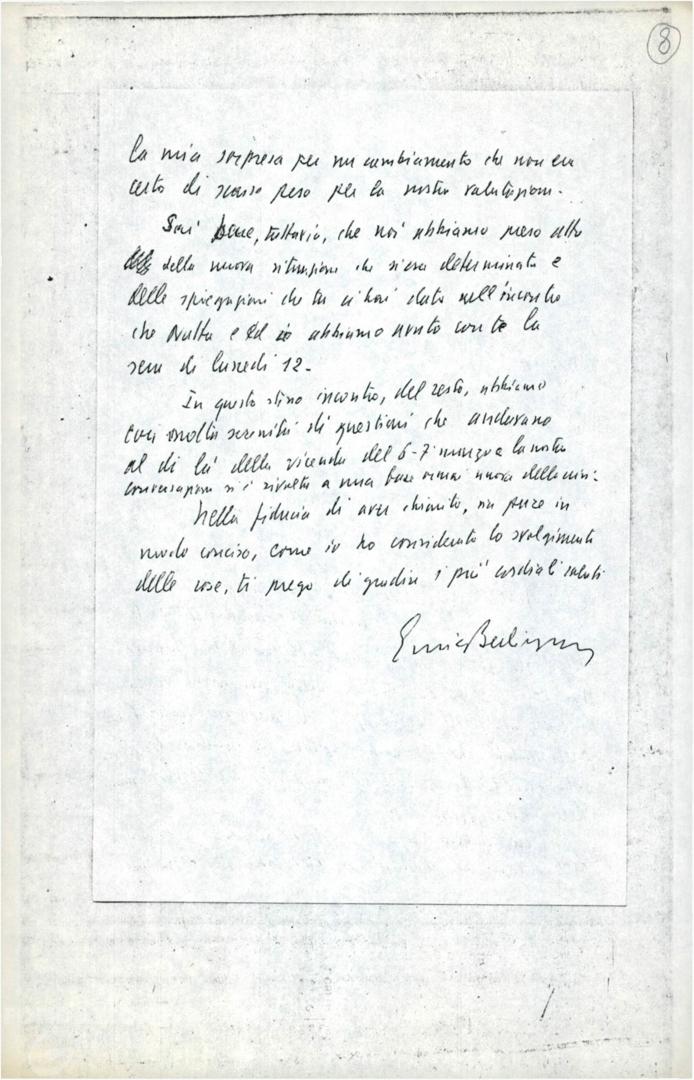 8
la mia sorpresa per un cambiamento che non era
certo di scarso peso per la nostra valutazione.
Sai bene, tuttavia, che noi abbiamo preso atto
della nuova situazione che si era determinata e
delle spiegazioni che tu ci hai dato nell'incontro
che Natta e ed io abbiamo avuto con te la
sera di lunedì 12.
In questo stesso incontro, del resto, abbiamo
con molta serenità di questioni che andavano
al di là della vicenda del 6-7 marzo e la nostra
conversazione si è svolta a una base ormai nuova
Nella fiducia di aver chiarito, sia pure in
modo conciso, come io ho considerato lo svolgimento
delle cose, ti prego di gradire i più cordiali saluti
Enrico Berlinguer